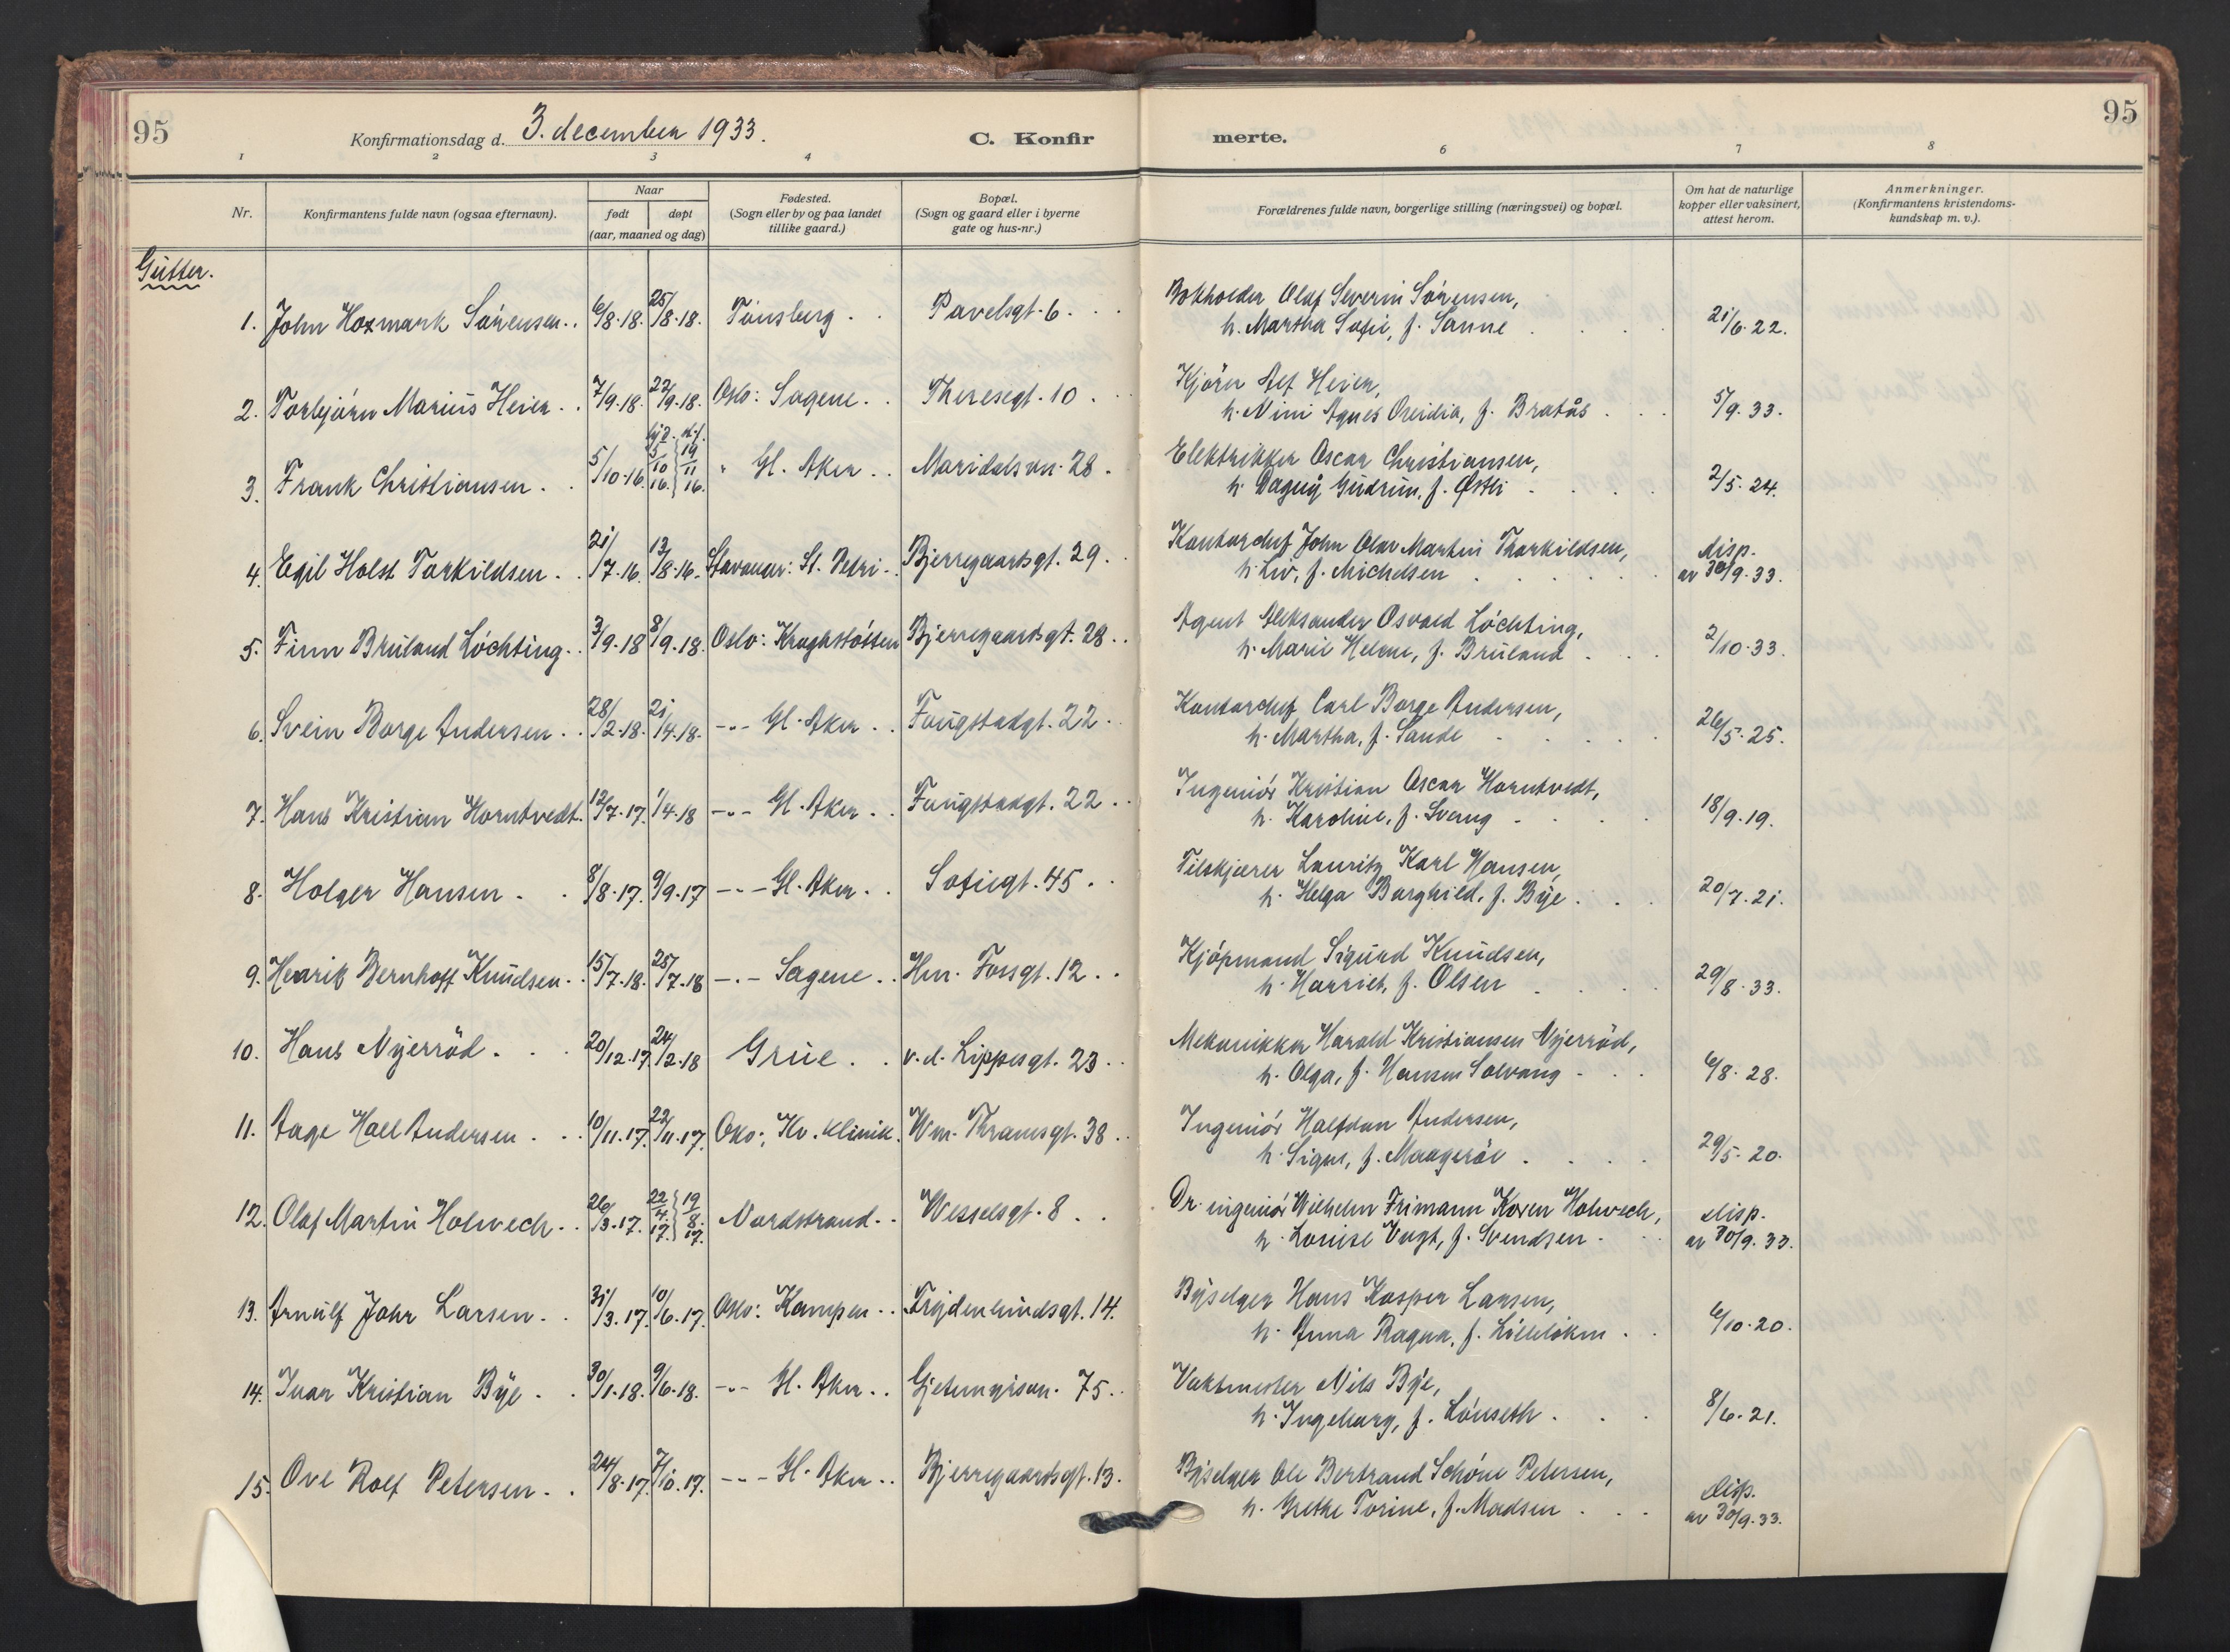 95
Konfirmationsdag d. 3. december 1933.
C. Konfir
merte.
95
1 2 3 4 6 7 8
Nr.
Konfirmantens fulde navn (ogsaa efternavn).
Naar
født døpt
(aar, maaned og dag)
Fødested.
(Sogn eller by og paa landet
tillike gaard.)
Bopæl.
(Sogn og gaard eller i byerne
gate og hus-nr.)
Forældrenes fulde navn, borgerlige stilling (næringsvei) og bopæl.
Om hat de naturlige
kopper eller vaksinert,
attest herom.
Anmerkninger.
(Konfirmantens kristendoms-
kundskap m. v.).
Gutter.
1. John Hoxmark Sørensen. 6/8.18. 25/8.18. Tønsberg. Pavelsgt. 6.
Bokholder Olaf Severin Sørensen,
h. Martha Sofie, f. Sanne 21/6.22.
2. Torbjørn Marius Heier. 7/9.18. 22/9.18. Oslo: Sagene. Theresegt. 10.
Kjører Alf Heier,
h. Nini Agnes Oveidia, f. Bratås 5/9.33.
3. Frank Christiansen. 5/10.16. hj.d. 5/10 16. st.f. 19/11 16. " Gl. Aker. Maridalsvn. 28.
Elektrikker Oscar Christiansen,
h. Dagny Gudrun, f. Østli 2/5.24.
4. Egil Holst Torkildsen. 21/7.16. 13/8.16. Stavanger: St. Petri. Bjerregaardsgt. 29.
Kontorchef John Olav Martin Thorkildsen,
h. Liv, f. Michelsen disp.
av 30/9.33.
5. Finn Bruland Løchting. 3/9.18 8/9.18. Oslo: Kraghstøtten Bjerregaardsgt. 28.
Agent Aleksander Osvald Løchting,
h. Marie Helene, f. Bruland 2/10.33.
6. Svein Borge Andersen. 28/2.18. 21/4.18. -"- Gl. Aker. Faugstadgt. 22.
Kontorchef Carl Borge Andersen,
h. Martha, f. Sande 26/5.25.
7. Hans Kristian Horntvedt. 12/7.17. 1/4.18 -"- Gl. Aker. Faugstadgt. 22.
Ingeniør Kristian Oscar Horntvedt,
h. Karoline, f. Svang 18/9.19.
8. Holger Hansen. 8/8.17. 9/9.17 -"- Gl. Aker. Sofiegt. 45.
Tilskjærer Lauritz Karl Hansen,
h. Helga Borghild, f. Bye. 20/7.21.
9. Henrik Bernhoff Knudsen. 15/7.18. 25/7.18 -"- Sagene. Hm. Fossgt. 12.
Kjøpmand Sigurd Knudsen,
h. Harriet, f. Olsen 29/8.33.
10. Hans Nyerrød. 20/12.17. 24/2.18 Grue. v. d. Lippesgt. 23.
Mekanikker Harald Kristiansen Nyerrød,
h. Olga, f. Hansen Solvang 6/8.28.
11. Aage Hall Andersen. 10/11.17. 22/11.17. Oslo: Kv. klinik. Wm. Thranesgt. 38.
Ingeniør Halfdan Andersen,
h. Signe, f. Maagerøe. 29/5.20.
12. Olaf Martin Holwech. 26/3.17. 22/4. 17. 19/8. 17. Nordstrand. Wesselsgt. 8.
Dr. ingeniør Wilhelm Frimann Koren Holwech,
h. Louise Vogt, f. Svendsen. disp.
av 30/9.33.
13. Arnulf Johr Larsen. 31/3.17. 10/6.17. Oslo: Kampen. Frydenlundsgt. 14.
Byselger Hans Kasper Larsen,
h. Anna Ragna, f. Lilleløken. 6/10.20.
14. Ivar Kristian Bye. 30/1.18. 9/6.18. -"- Gl. Aker. Gjetemyrsvn. 75.
Vaktmester Nils Bye,
h. Ingeborg, f. Lønseth. 8/6.21.
15. Ove Rolf Petersen. 24/8.17. 7/10.17. -"- Gl. Aker. Bjerregaardsgt. 13.
Byselger Ole Bertrand Schøne Petersen,
h. Grethe Torine, f. Madsen. disp.
av 30/9.33.